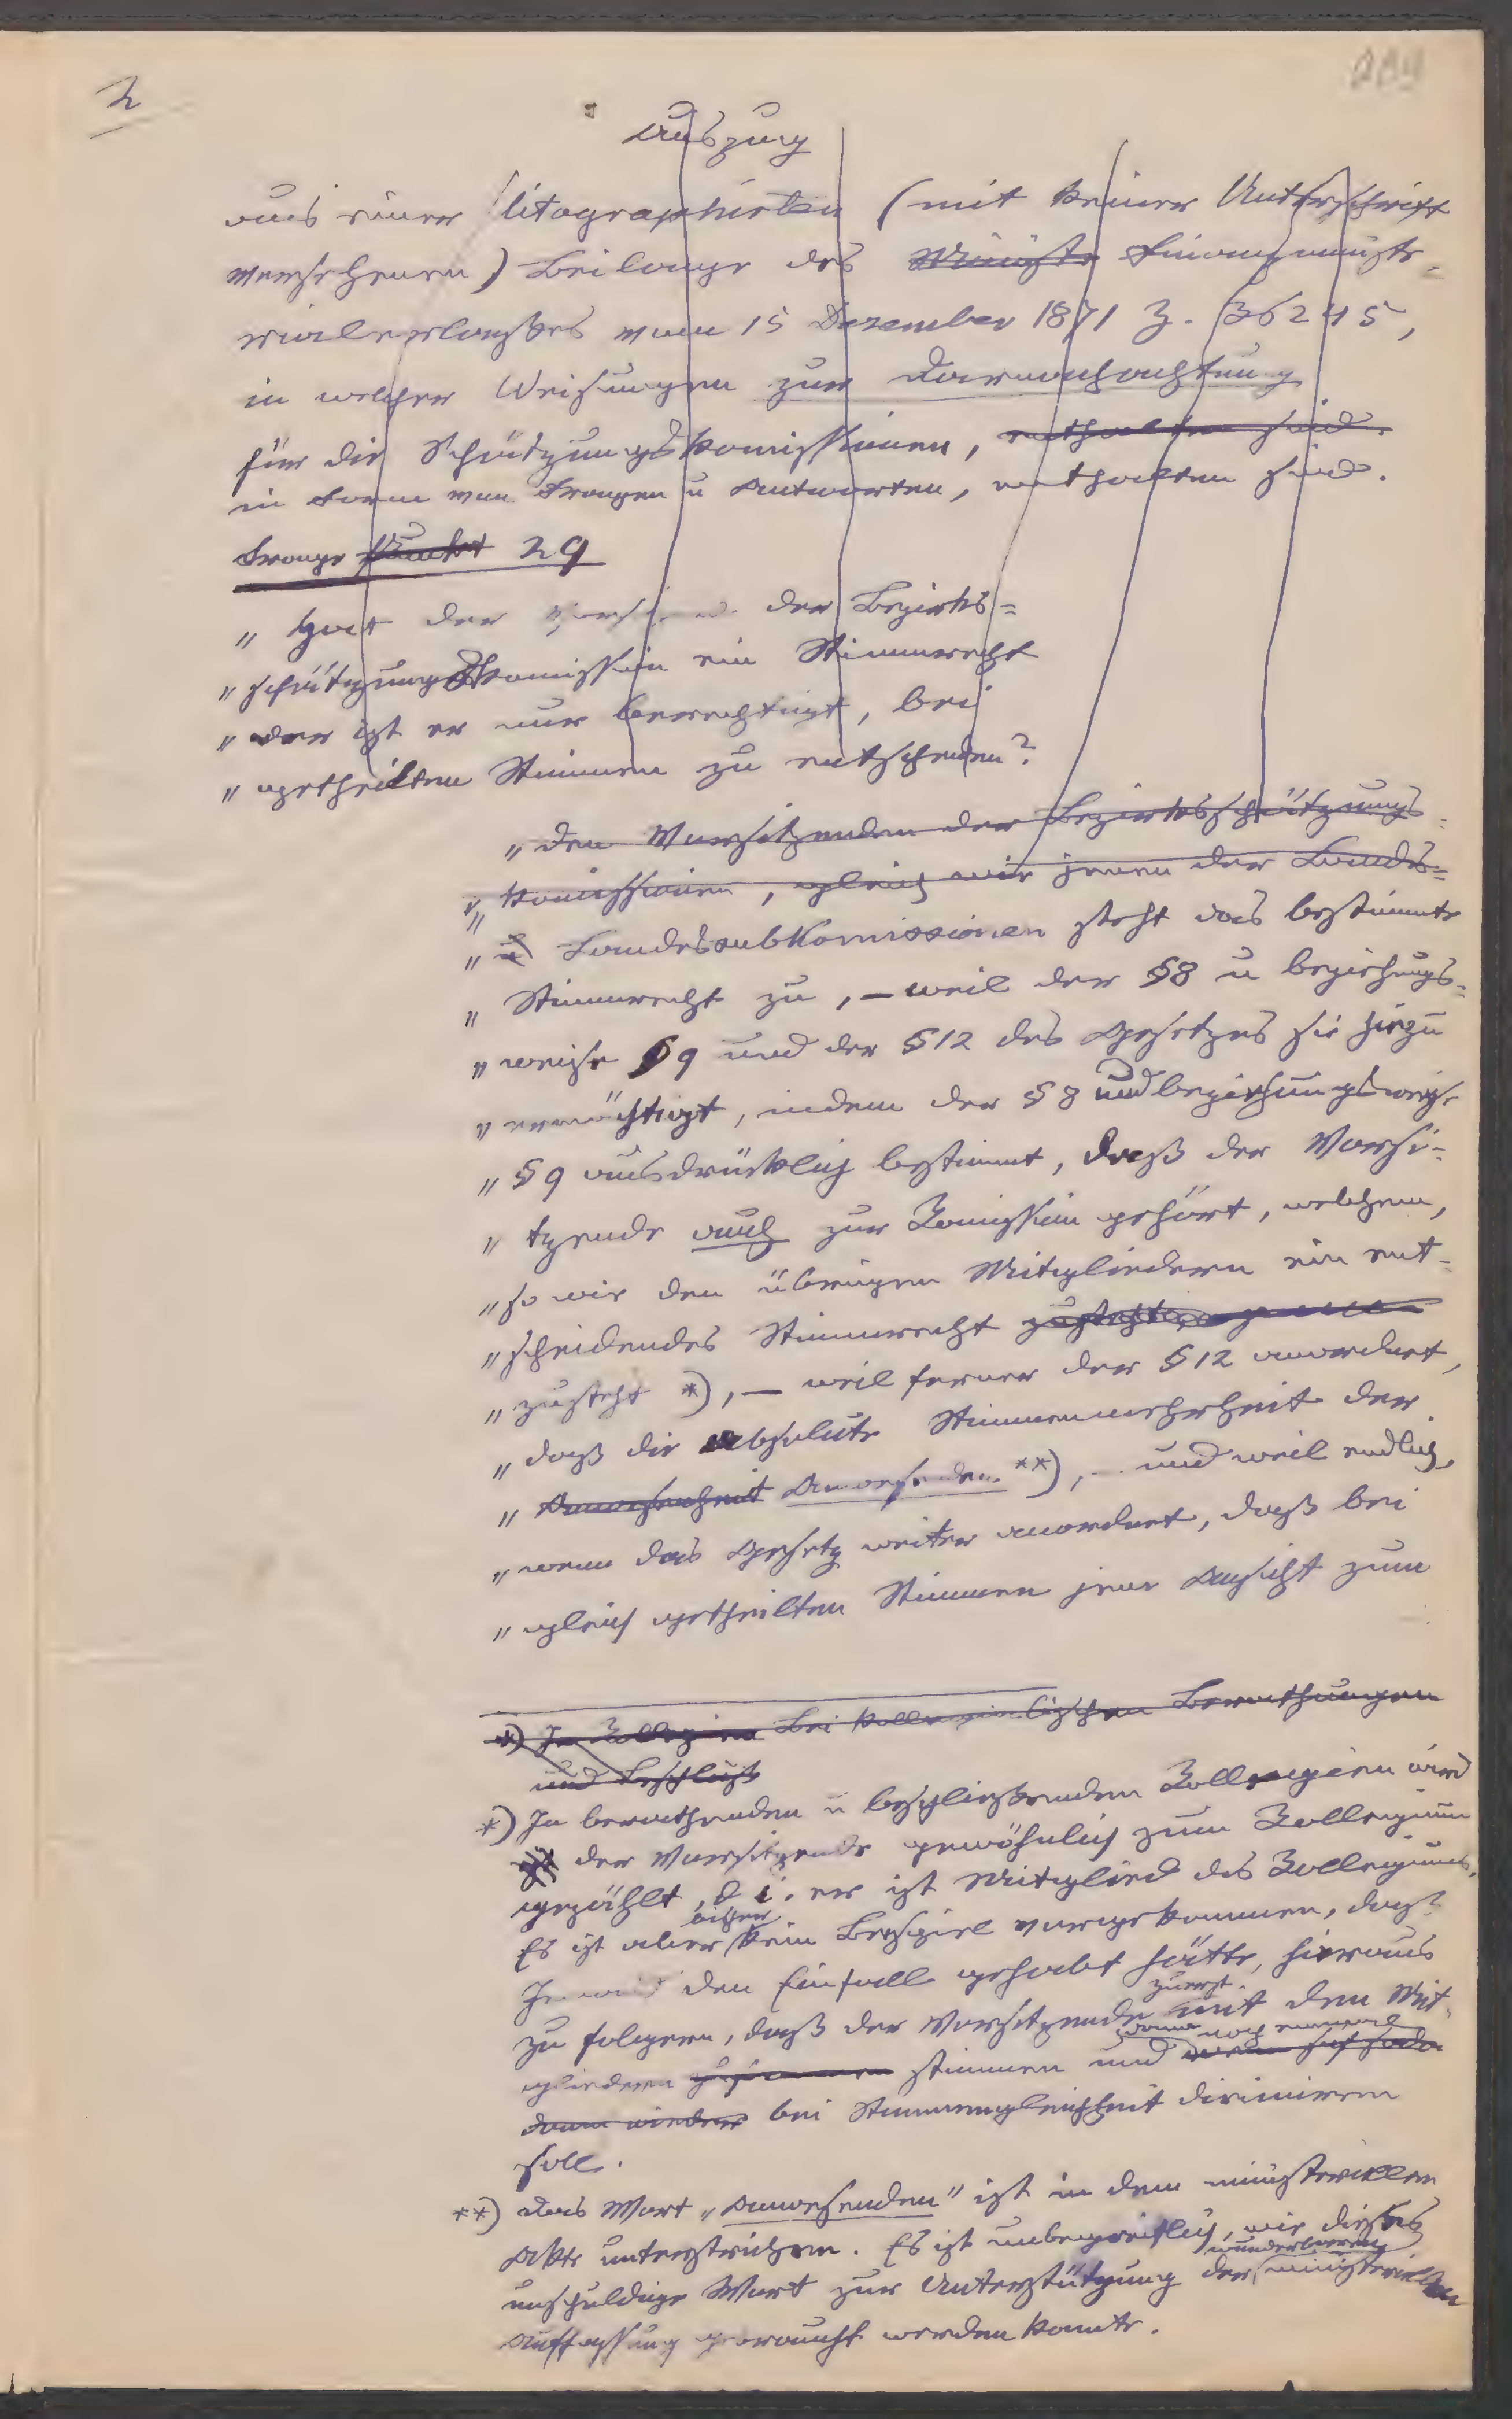 2
Auszug
aus einer litographirten (mit keiner Unterschrift
versehenen) Beilage des Ministe Finanzministe-
rialerlasses vom 15 Dezember 1871 Z. 36245,
in welcher Weisungen zur Darnachachtung
für die Schätzungskomissionen, enthalten sind.
in Form von Fragen u Antworten, enthalten sind.
Frage Punkt 29
„ Hat der Vorsitzende der Bezirks=
„ schätzungskomission ein Stimmrecht
„ oder ist er nur berechtigt, bei
„ getheilten Stimmen zu entscheiden?
„ den Vorsitzenden der Bezirksschätzungs=
„ komissionen, gleich wie jenen der Landes=
„ u Landessubkomissionen steht das bestimmte
„ Stimmrecht zu, – weil der §8 u beziehungs=
„ weise §9 und der §12 des Gesetzes sie hiezu
„ ermächtigt, indem der §8 und beziehungsweise
„ §9 ausdrücklich bestimmt, daß der Vorsi=
„ tzende auch zur Komission gehört, welchem,
„ so wie den übrigen Mitgliedern ein ent-
„ scheidendes Stimmrecht
„ zusteht *), – weil ferner der §12 anordnet,
„ daß die absolute Stimmenmehrheit der
„ Anwesenheit Anwesenden **), – und weil endlich,
„ wenn das Gesetz weiter anordnet, daß bei
„ gleich getheilten Stimmen jene Ansicht zum
*) In Kollegien Bei kollegialischen Berathungen
und Beschlüsse
*) In berathenden u beschließenden Kollegien wird
ist der Vorsitzende gewöhnlich zum Kollegium
gezählt, d. i. er ist Mitglied des Kollegiums.
Es ist aber bisher kein Beispiel vorgekommen, daß
Jemand den Einfall gehabt hätte, hieraus
zu folgern, daß der Vorsitzende zuerst mit den Mit-
gliedern zusammen stimmen und dann noch einmal
dann wieder bei Stimmengleichheit dirimiren
soll.
**) Das Wort „Anwesenden“ ist in dem ministeriellen
Akte unterstrichen. Es ist unbegreiflich, wie dieses
unschuldige Wort zur Unterstützung der wunderbaren ministeriellen
Auffassung gebraucht werden konnte.